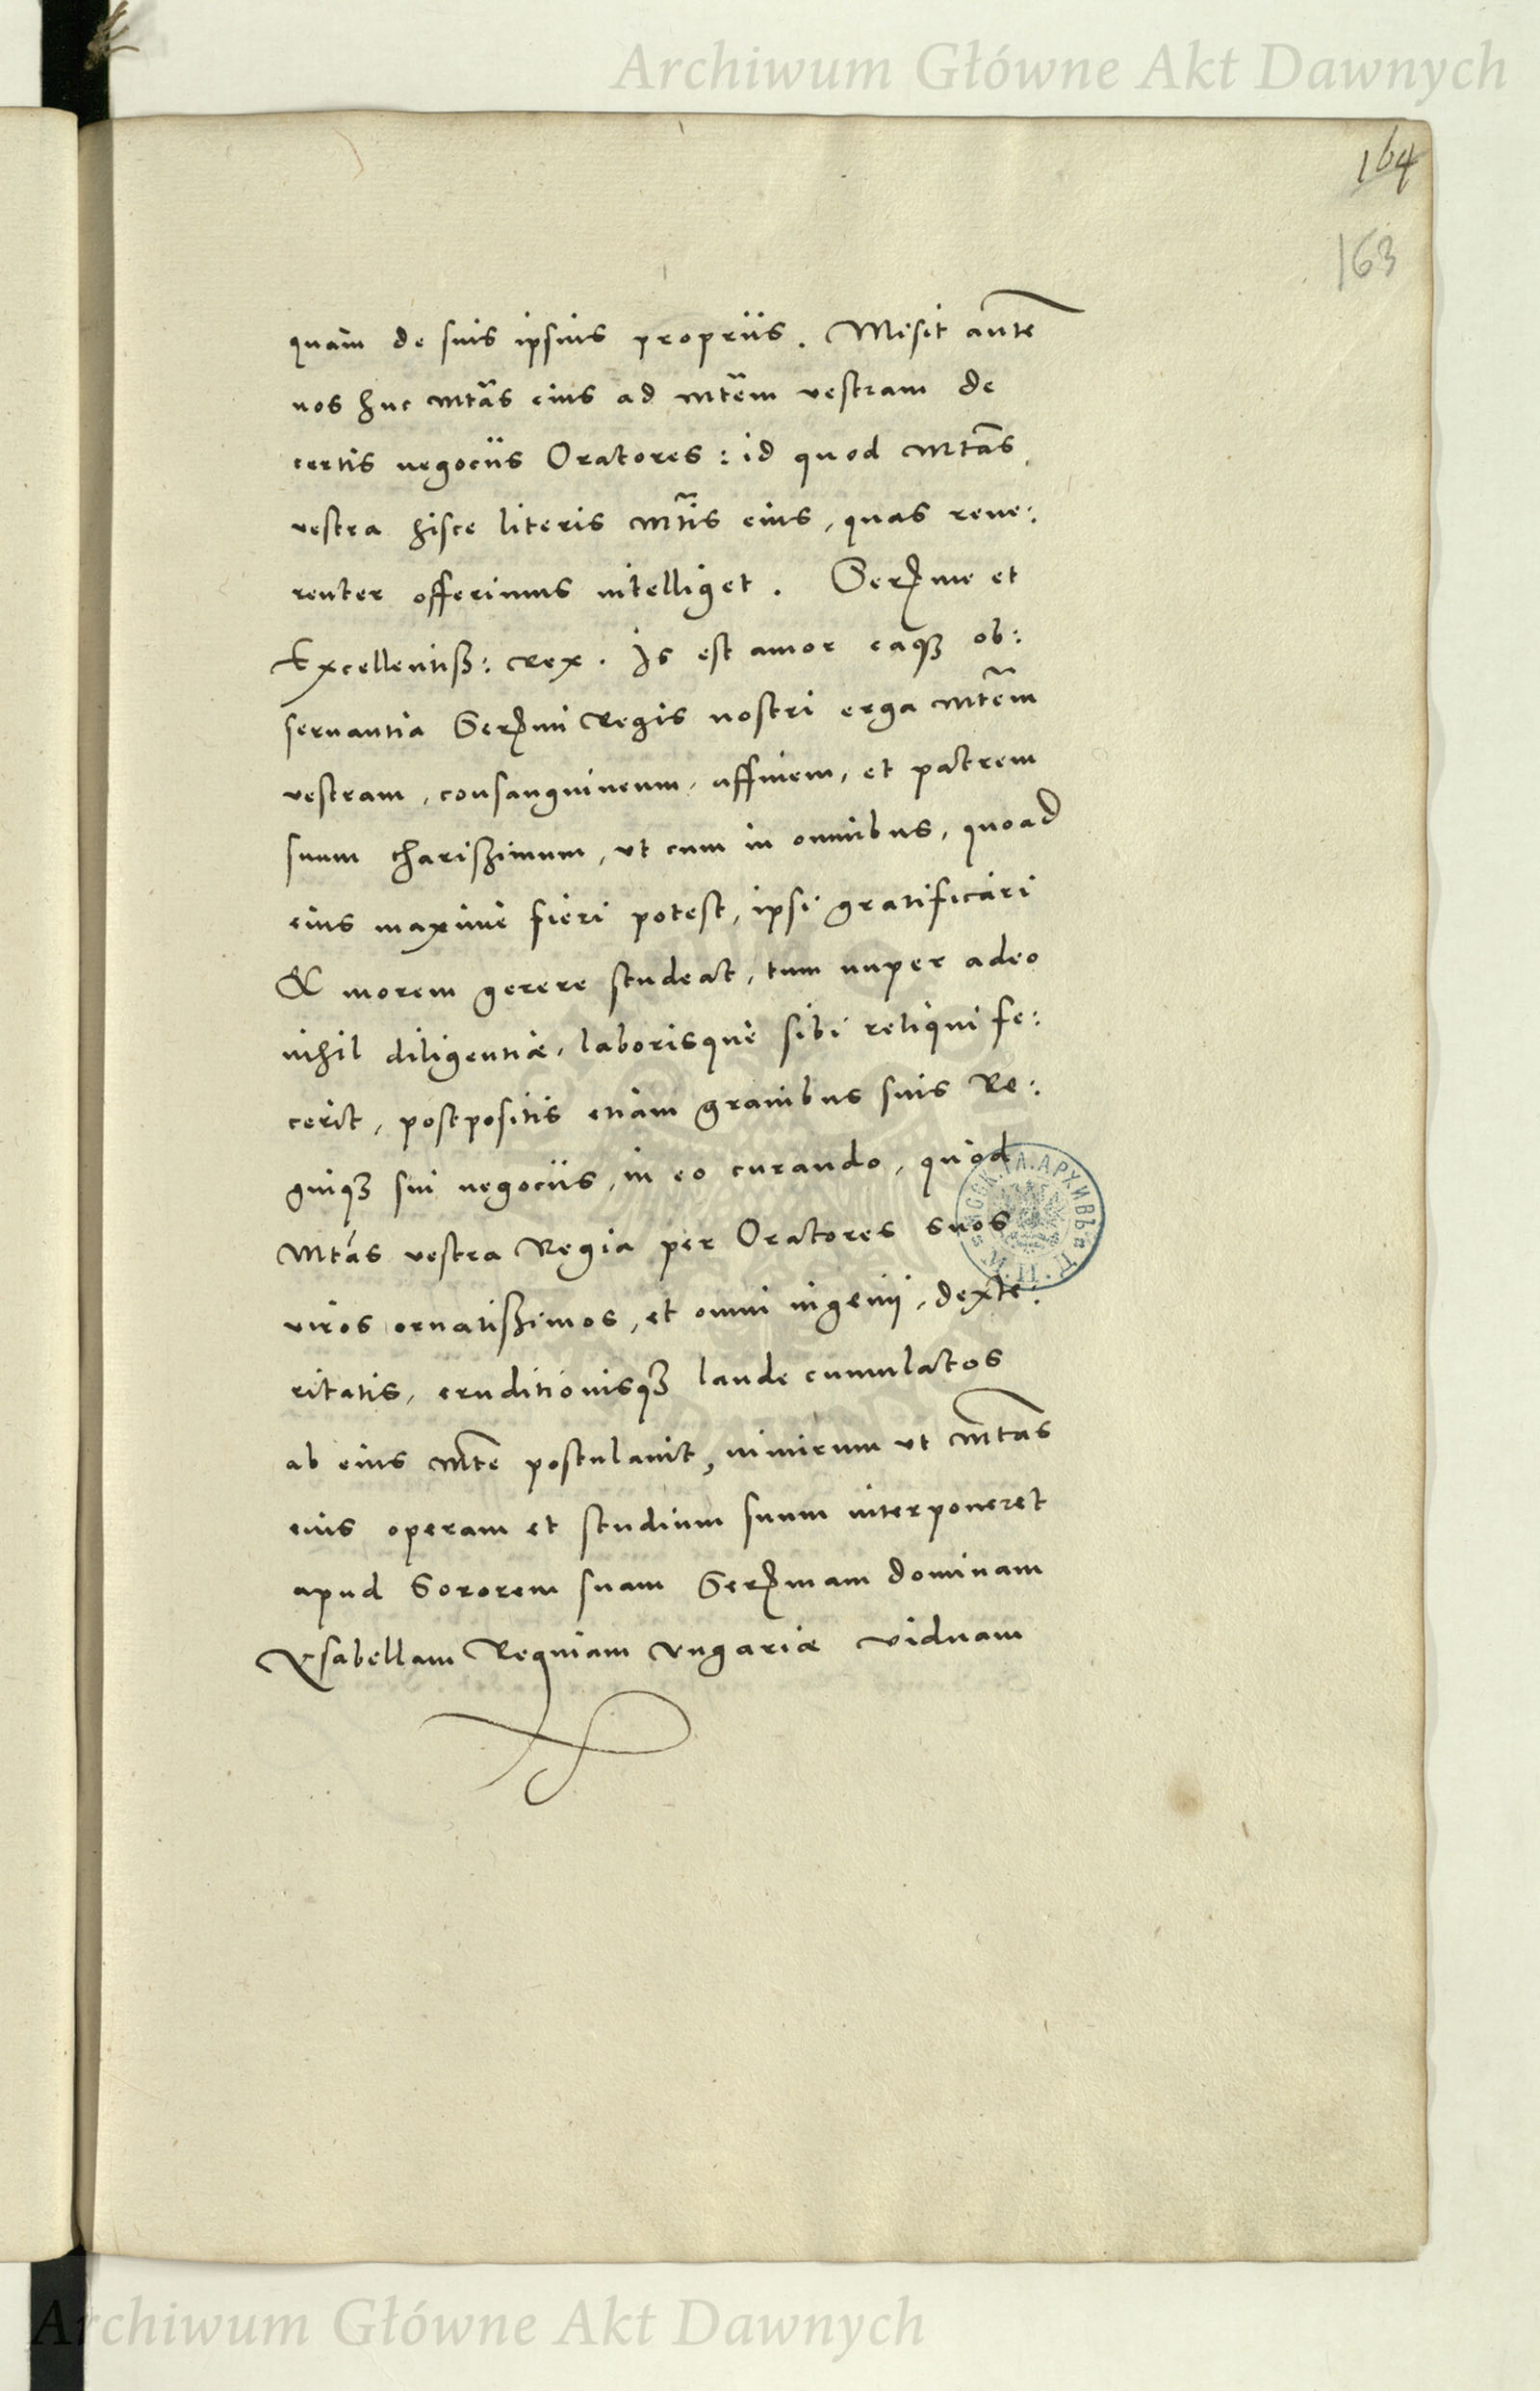 Archiwum Główne Akt Dawnych
164
163
quàm de suis ipsius propriis. Misit autē
nos huc Mtās eius ad Mtēm vestram de
certis negociis Oratores: id quod Mtās
vestra hisce literis Mtīs eius, quas reue:
renter offerimus intelliget. Serme et
Excellentiß: Rex. Is est amor eaqꝫ ob:
seruantia Sermi Regis nostri erga Mtēm
vestram, consanguineum, affinem, et patrem
suum chariſſimum, vt cum in omnibus, quoad
eius maximè fieri potest, ipsi gratificari
& morem gerere studeat, tum nuper adeo
nihil diligentiæ, laborisquè sibi reliqui fe:
cerit, postpositis etiam grauibus suis Re:
gniqꝫ sui negociis, in eo curando, quod
Mtás vestra Regia per Oratores suos
viros ornatißimos, et omni ingenij, dexte:
ritatis, eruditionisqꝫ laude cumulatos
ab eius Mtē postulauit, nimirum vt Mtās
eius operam et studium suum interponeret
apud Sororem suam Sermam dominam
Ysabellam Reginam Vngariæ viduam
Archiwum Główne Akt Dawnych